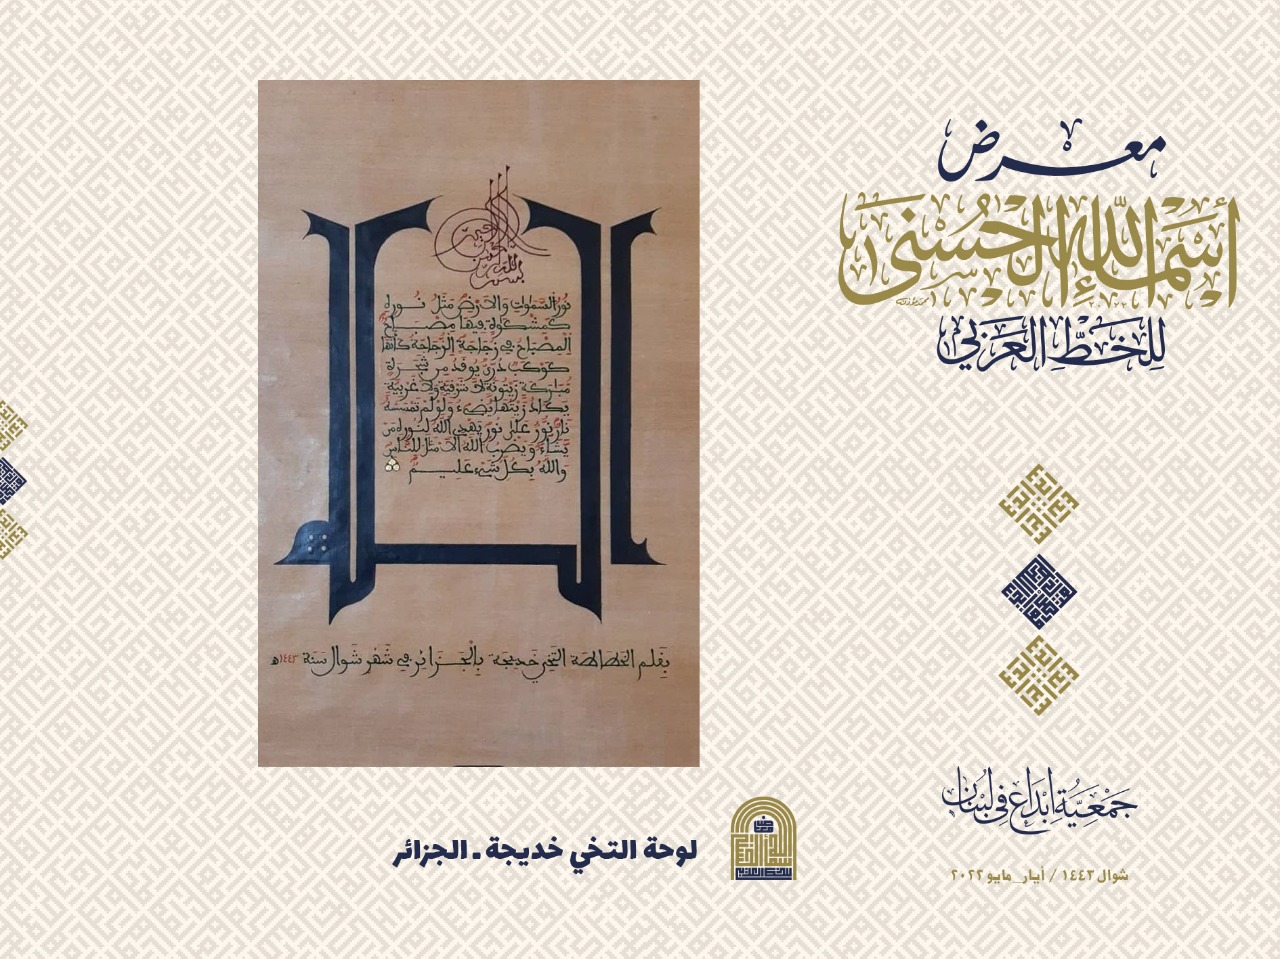 معرض
أسماء الله الحسنى
للخط العربي
جمعية إبداع في لبنان
شوال ١٤٤٣ / أيار_مايو ٢٠٢٢
بسم الله الرحمن الرحيم
نور السموات والارض مثل نوره
كمشكوة فيها مصباح
المصباح في زجاجة الزجاجة كأنها
كوكب دري يوقد من شجرة
مبركة زيتونة لا شرقية ولا غربية
يكاد زيتها يضيء ولو لم تمسسه
نار نور على نور يهدي الله لنوره من
يشاء ويضرب الله الامثل للناس
والله بكل شيء عليم
بقلم الخطاطة التخي خديجة بالجزائر في شهر شوال سنة ١٤٤٣هـ
لوحة التخي خديجة ـ الجزائر